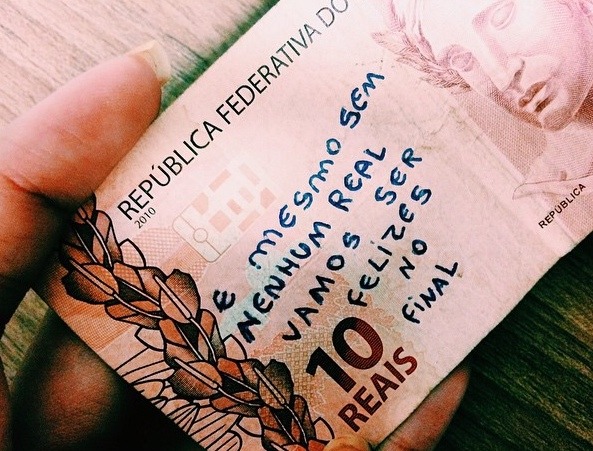 REPÚBLICA FEDERATIVA DO
2010
E MESMO SEM
NENHUM REAL
VAMOS SER
FELIZES
NO
FINAL
10
REAIS
REPÚBLICA